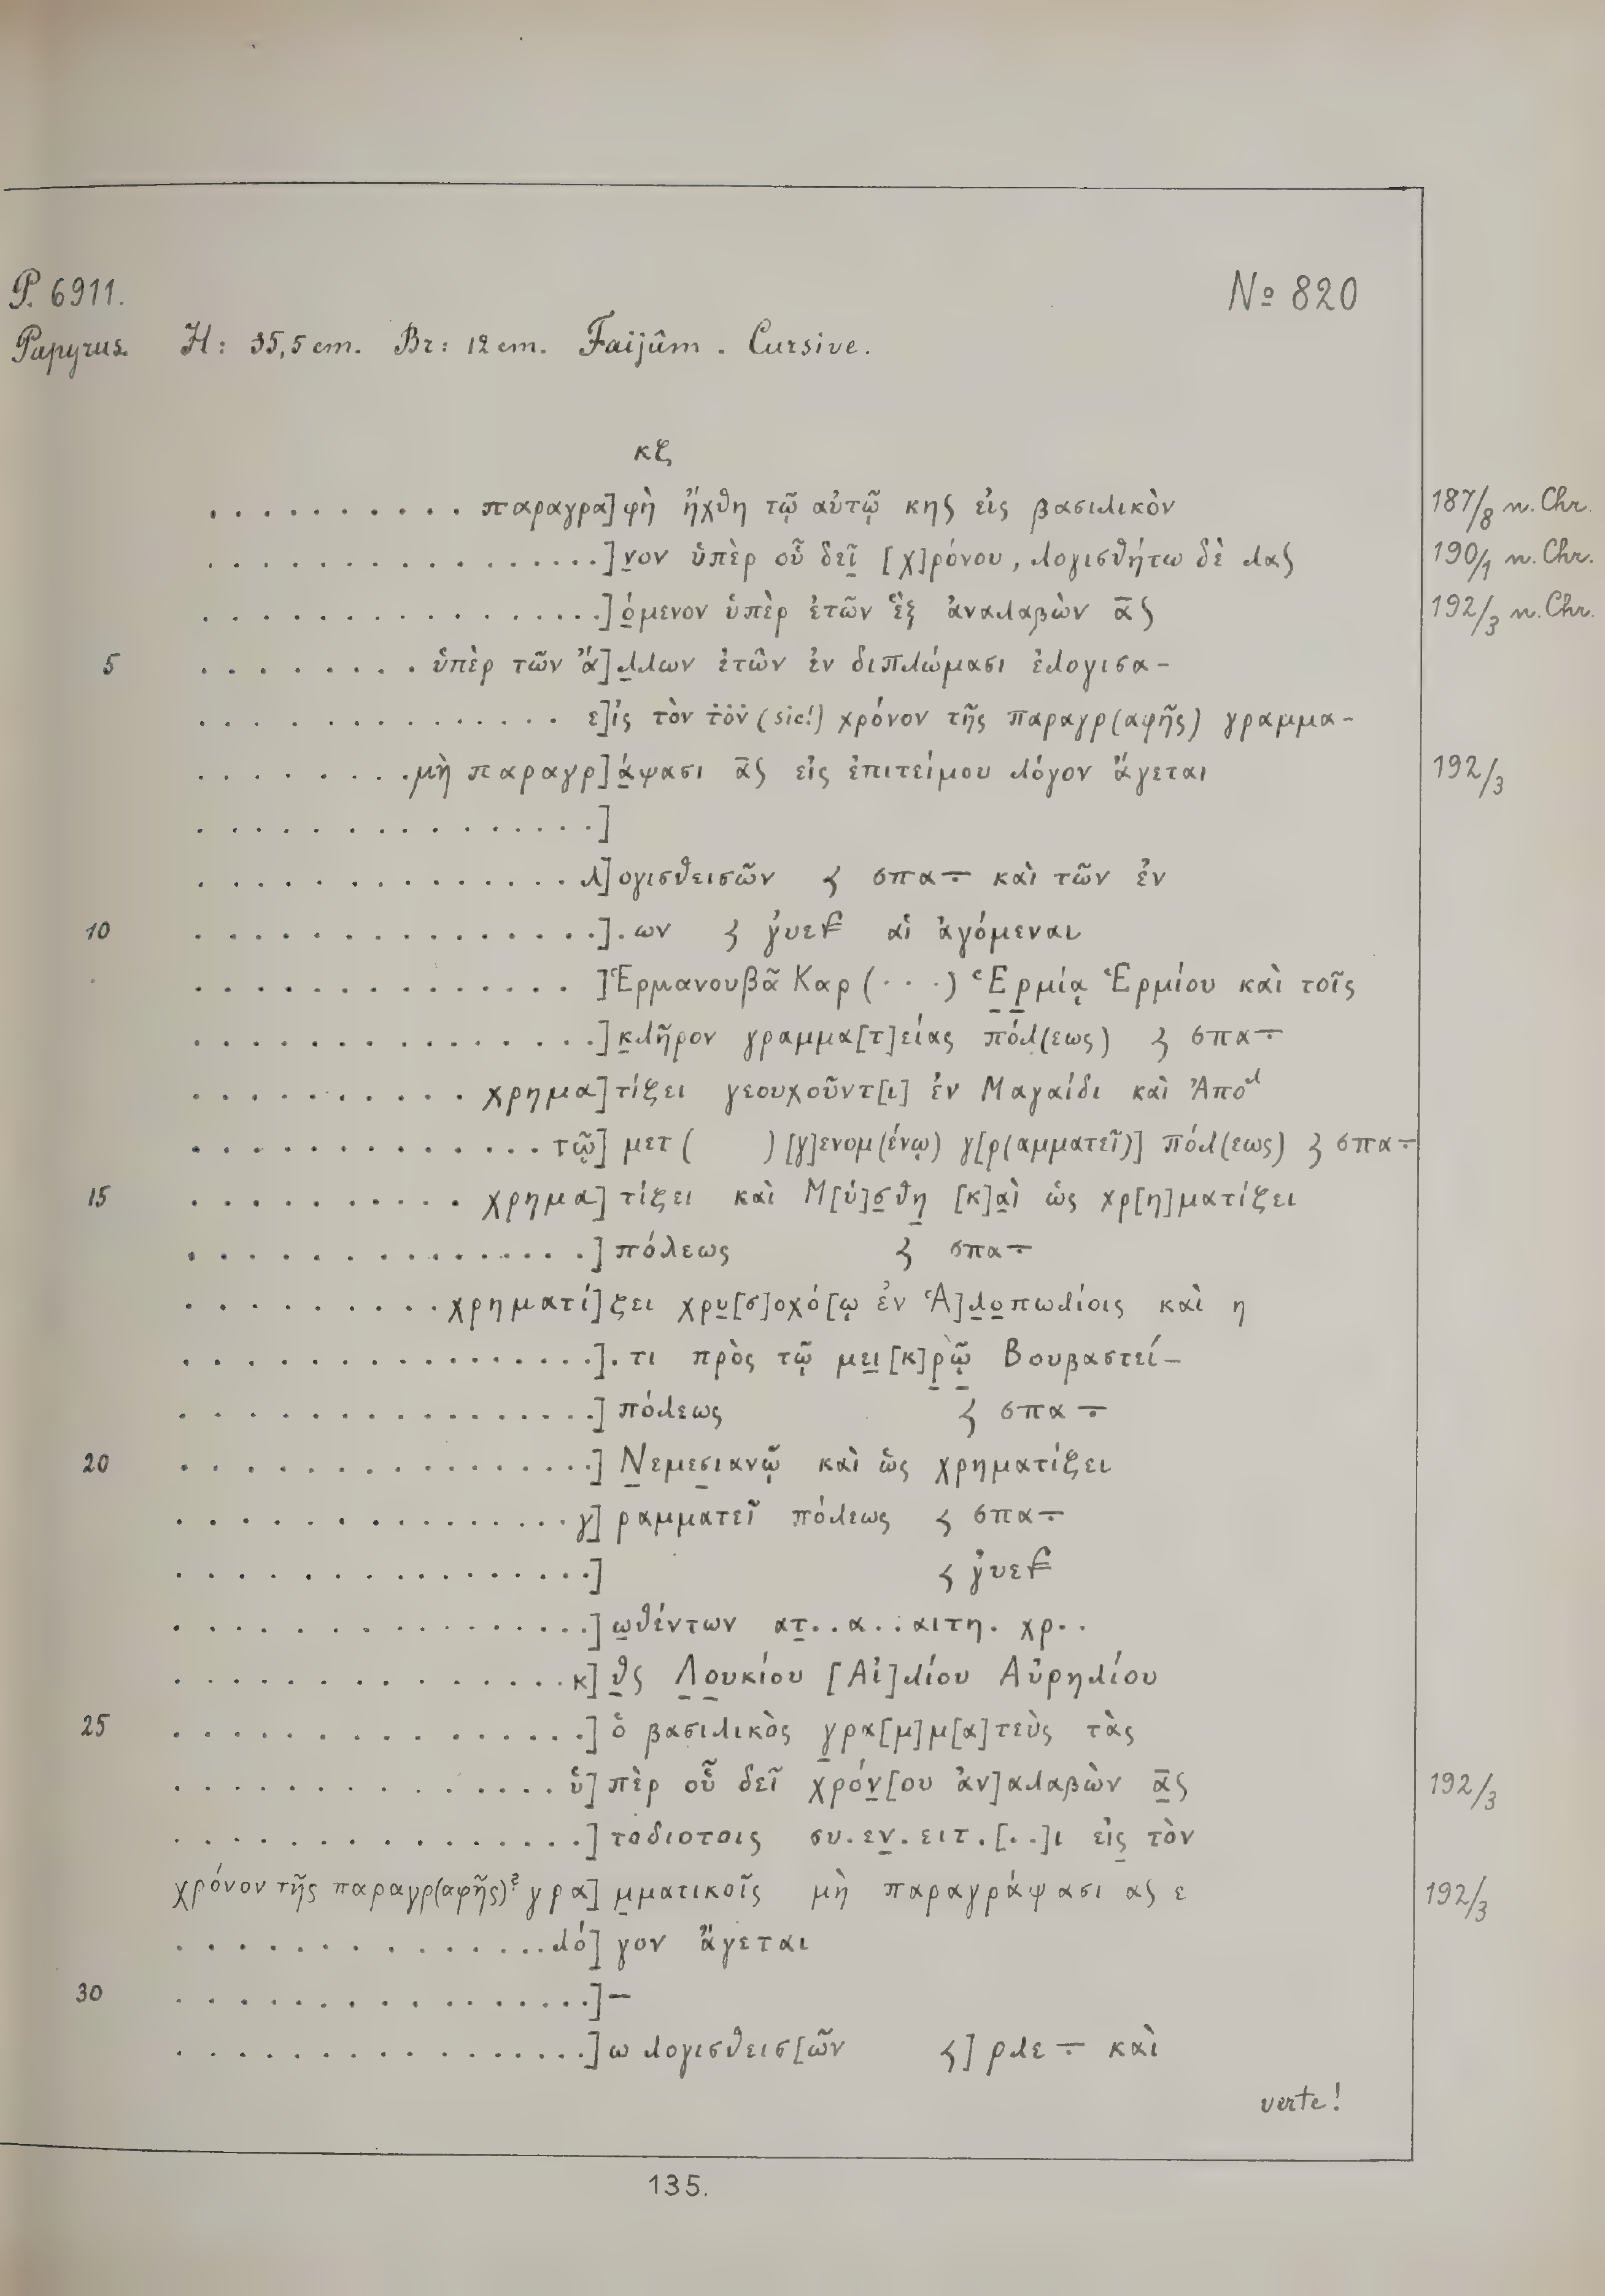 P. 6911. № 820
Papyrus. H: 35,5 cm. Br: 12 cm. Faijûm. Cursive.
κζ
. . . . . . . . . . παραγρα]φὴ ἤχθη τῷ αὐτῷ κηϛ εἰς βασιλικὸν 187/8 n. Chr.
. . . . . . . . . . . . . . . . .]νον ὑπὲρ οὗ δεῖ [χ]ρόνου, λογισθήτω δὲ λαϛ 190/1 n. Chr.
. . . . . . . . . . . . . . . . .]όμενον ὑπὲρ ἐτῶν ἓξ ἀναλαβὼν ᾱϛ 192/3 n. Chr.
5 . . . . . . . . ὑπὲρ τῶν ἄ]λλων ἐτῶν ἐν διπλώμασι ἐλογισα-
. . . . . . . . . . . . . . ε]ἰς τὸν τὸν (sic!) χρόνον τῆς παραγρ(αφῆς) γραμμα-
. . . . . . . . μὴ παραγρ]άψασι ᾱϛ εἰς ἐπιτείμου λόγον ἄγεται 192/3
. . . . . . . . . . . . . . . .]
. . . . . . . . . . . . . . λ]ογισθεισῶν 𐅹 σπα– καὶ τῶν ἐν
10 . . . . . . . . . . . . . . . .].ων 𐅹 γ̓υε αἱ ἀγόμεναι
. . . . . . . . . . . . . . ]Ἑρμανουβᾶ Καρ(· · ·) Ἑρμίᾳ Ἑρμίου καὶ τοῖς
. . . . . . . . . . . . . . . .]κλῆρον γραμμα[τ]είας πόλ(εως) 𐅹 σπα–
. . . . . . . . . . χρημα]τίζει γεουχοῦντ[ι] ἐν Μαγαίδι καὶ Ἀπολ
. . . . . . . . . . . . . τῷ] μετ( ) [γ]ενομ(ένῳ) γ[ρ(αμματεῖ)] πόλ(εως) 𐅹 σπα–
15 . . . . . . . . . . χρημα]τίζει καὶ Μ[ύ]σθη [κ]αὶ ὡς χρ[η]ματίζει
. . . . . . . . . . . . . . . .] πόλεως 𐅹 σπα–
. . . . . . . . . χρηματί]ζει χρυ[σ]οχό[ῳ ἐν Ἁ]λοπωλίοις καὶ η
. . . . . . . . . . . . . . . .].τι πρὸς τῷ μει[κ]ρῷ Βουβαστεί-
. . . . . . . . . . . . . . . .] πόλεως 𐅹 σπα–
20 . . . . . . . . . . . . . . . .] Νεμεσιανῷ καὶ ὡς χρηματίζει
. . . . . . . . . . . . . . . γ]ραμματεῖ πόλεως 𐅹 σπα–
. . . . . . . . . . . . . . . .] 𐅹 γ̓υε
. . . . . . . . . . . . . . . .]ωθέντων ατ..α..αιτη. χρ..
. . . . . . . . . . . . . . . κ]θϛ Λουκίου [Αἰ]λίου Αὐρηλίου
25 . . . . . . . . . . . . . . . .] ὁ βασιλικὸς γρα[μ]μ[α]τεὺς τὰς
. . . . . . . . . . . . . . . ὑ]πὲρ οὗ δεῖ χρόν[ου ἀν]αλαβὼν ᾱϛ 192/3
. . . . . . . . . . . . . . . .]τοδιοτοις συ.εν.ειτ.[..]ι εἰς τὸν
χρόνον τῆς παραγρ(αφῆς)? γρα]μματικοῖς μὴ παραγράψασι αϛ ε 192/3
. . . . . . . . . . . . . . . λό]γον ἄγεται
30 . . . . . . . . . . . . . . . .]—
. . . . . . . . . . . . . . . .]ω λογισθεισ[ῶν 𐅹] ρλε – καὶ
verte!
135.